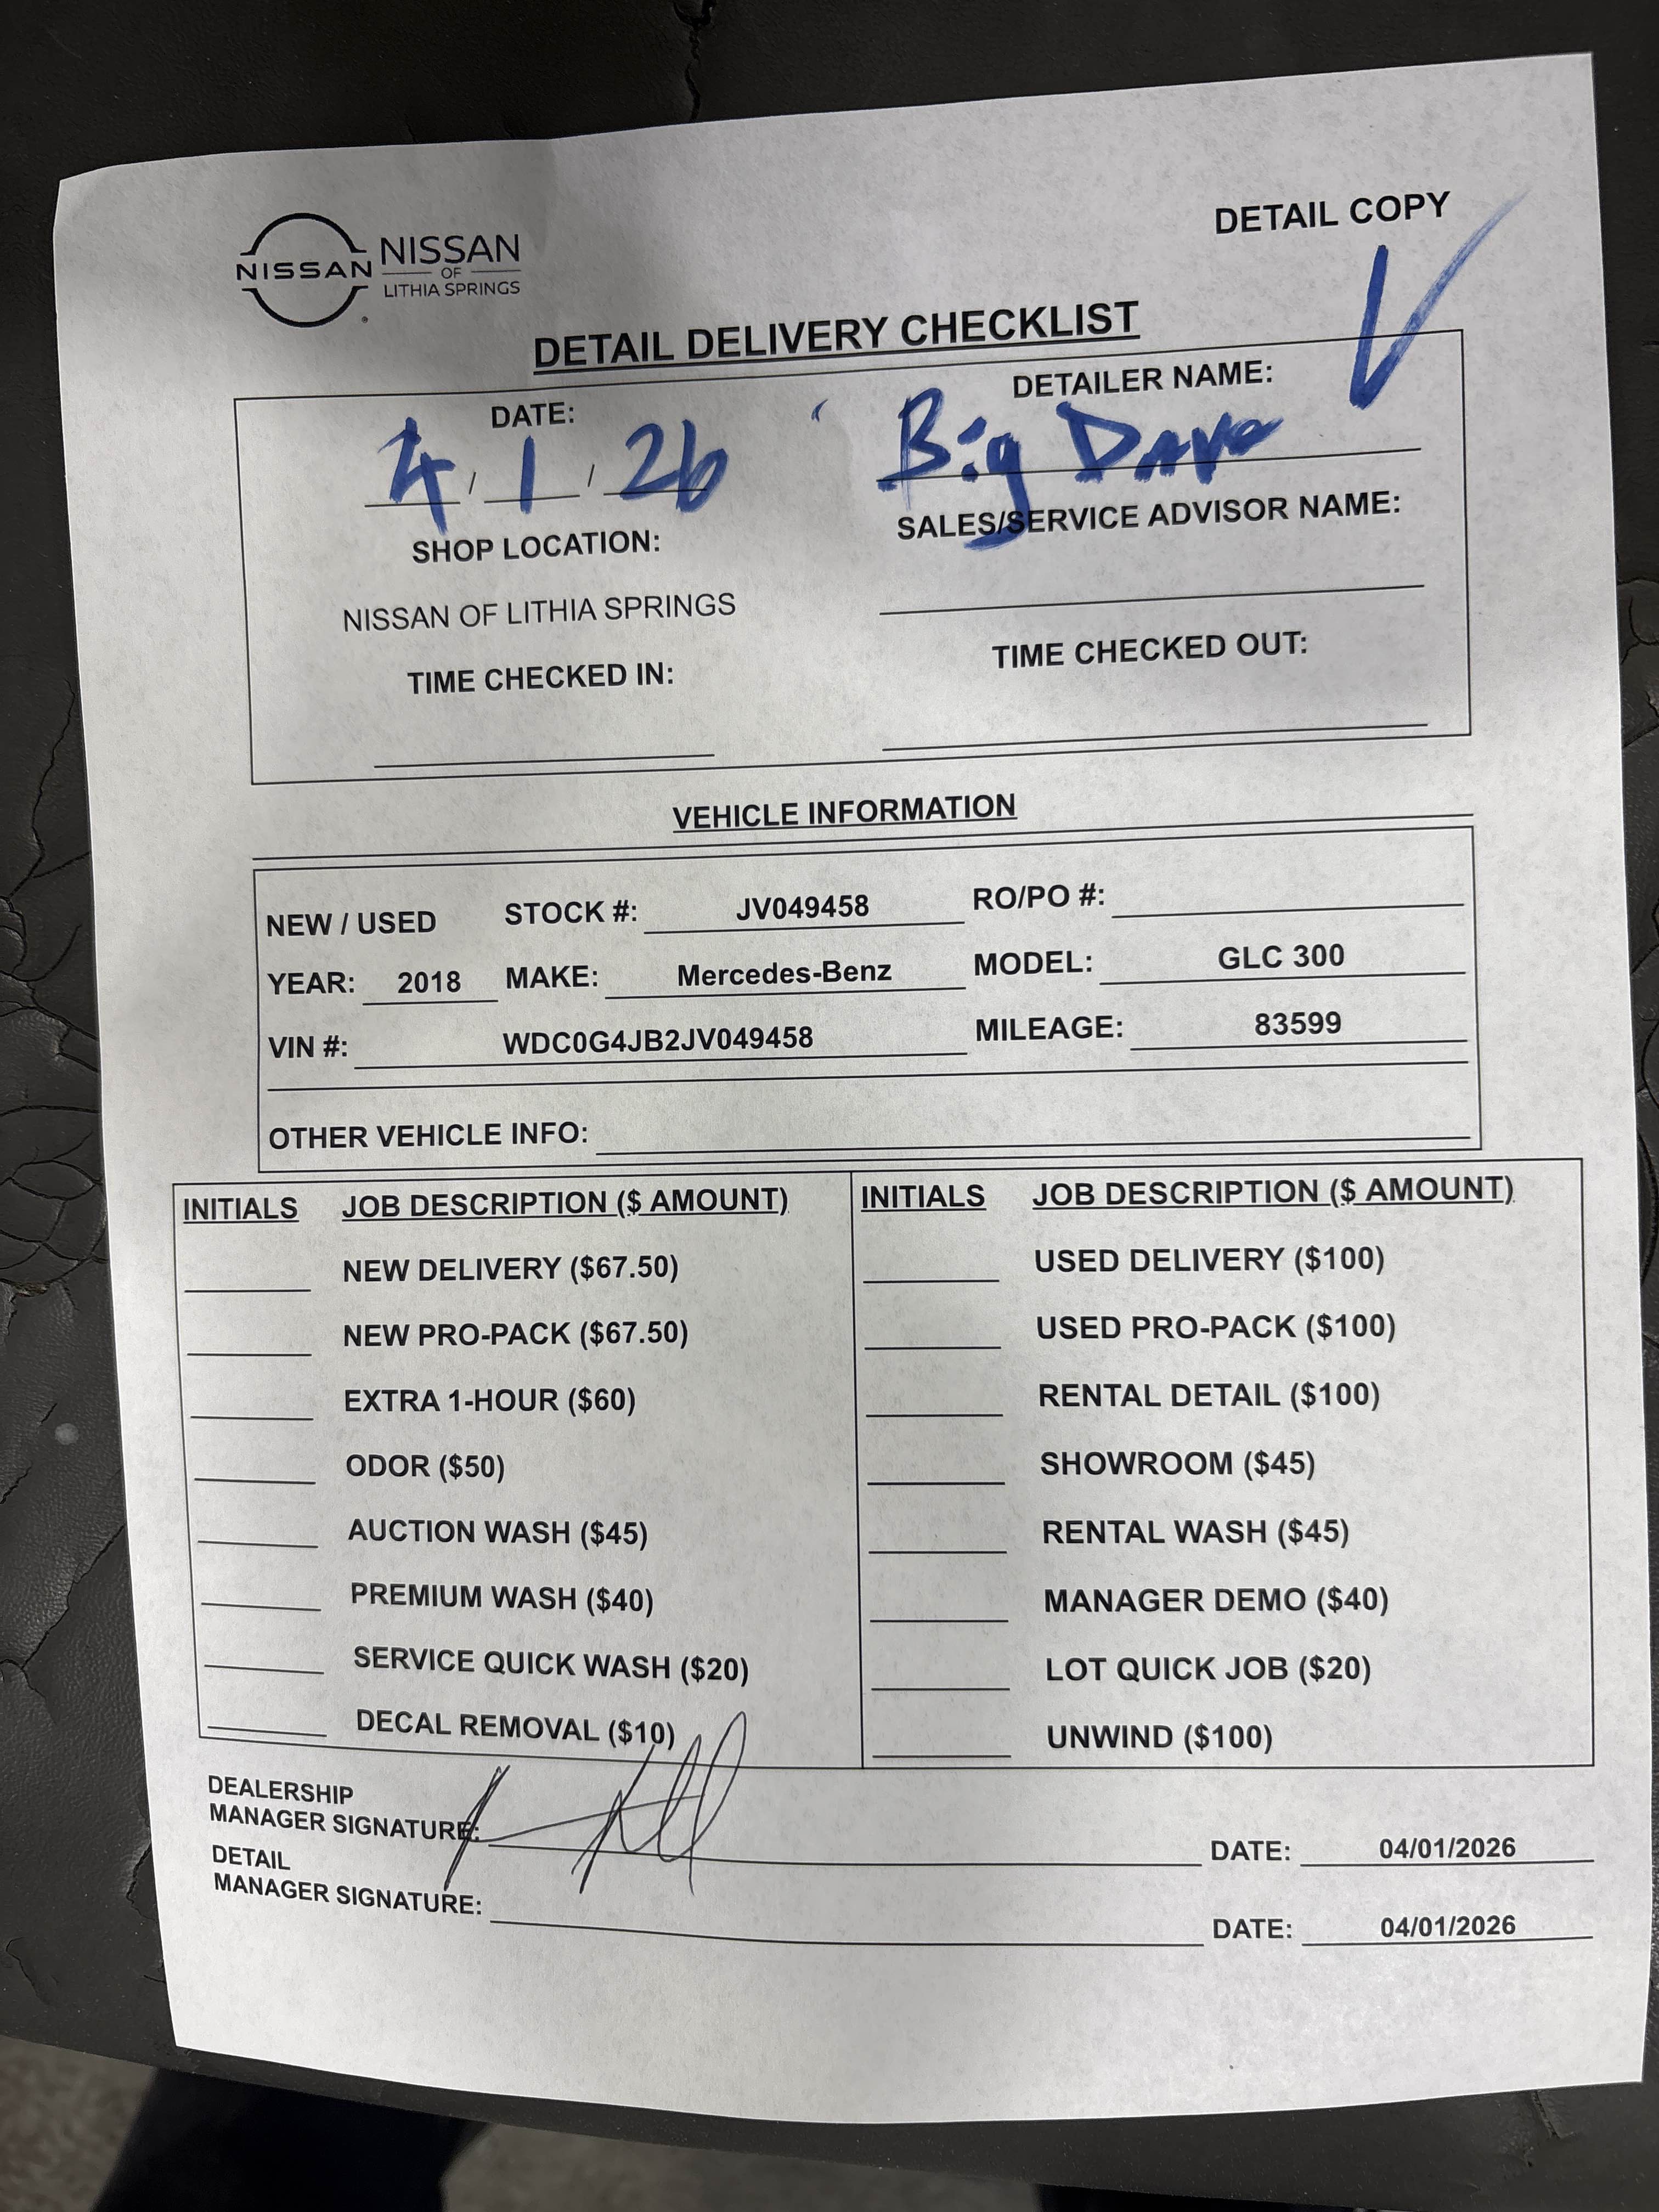 DETAIL COPY
NISSAN
NISSAN
OF
LITHIA SPRINGS
DETAIL DELIVERY CHECKLIST
DATE:
4 / 1 / 26
DETAILER NAME:
Big Dave
SHOP LOCATION:
NISSAN OF LITHIA SPRINGS
SALES/SERVICE ADVISOR NAME:
TIME CHECKED IN:
TIME CHECKED OUT:
VEHICLE INFORMATION
NEW / USED STOCK #: JV049458 RO/PO #:
YEAR: 2018 MAKE: Mercedes-Benz MODEL: GLC 300
VIN #: WDC0G4JB2JV049458 MILEAGE: 83599
OTHER VEHICLE INFO:
INITIALS JOB DESCRIPTION ($ AMOUNT) INITIALS JOB DESCRIPTION ($ AMOUNT)
NEW DELIVERY ($67.50) USED DELIVERY ($100)
NEW PRO-PACK ($67.50) USED PRO-PACK ($100)
EXTRA 1-HOUR ($60) RENTAL DETAIL ($100)
ODOR ($50) SHOWROOM ($45)
AUCTION WASH ($45) RENTAL WASH ($45)
PREMIUM WASH ($40) MANAGER DEMO ($40)
SERVICE QUICK WASH ($20) LOT QUICK JOB ($20)
DECAL REMOVAL ($10) UNWIND ($100)
DEALERSHIP
MANAGER SIGNATURE: DATE: 04/01/2026
DETAIL
MANAGER SIGNATURE: DATE: 04/01/2026